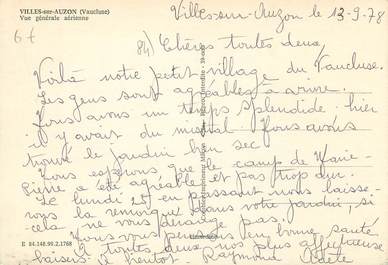 VILLES-sur-AUZON (Vaucluse)
Vue générale aérienne
Villes-sur-Auzon le 13-9-78
6f
84) Chères toutes deux,
Voilà notre petit village du Vaucluse.
Les gens sont agréables à vivre.
Nous avons un temps splendide. hier
il y avait du mistral. Nous avons
trouvé le jardin bien sec
Nous espérons que le camp de Marie-
Pierre a été agréable et pas trop dur.
Le lundi 25 en passant nous laisse-
rons la remorque dans votre jardin, si
cela ne vous dérange pas.
Nous vous pensons en bonne santé
toutes deux, nos plus affectueux
baisers et à bientôt Raymond
E 84.148.99.2.1768